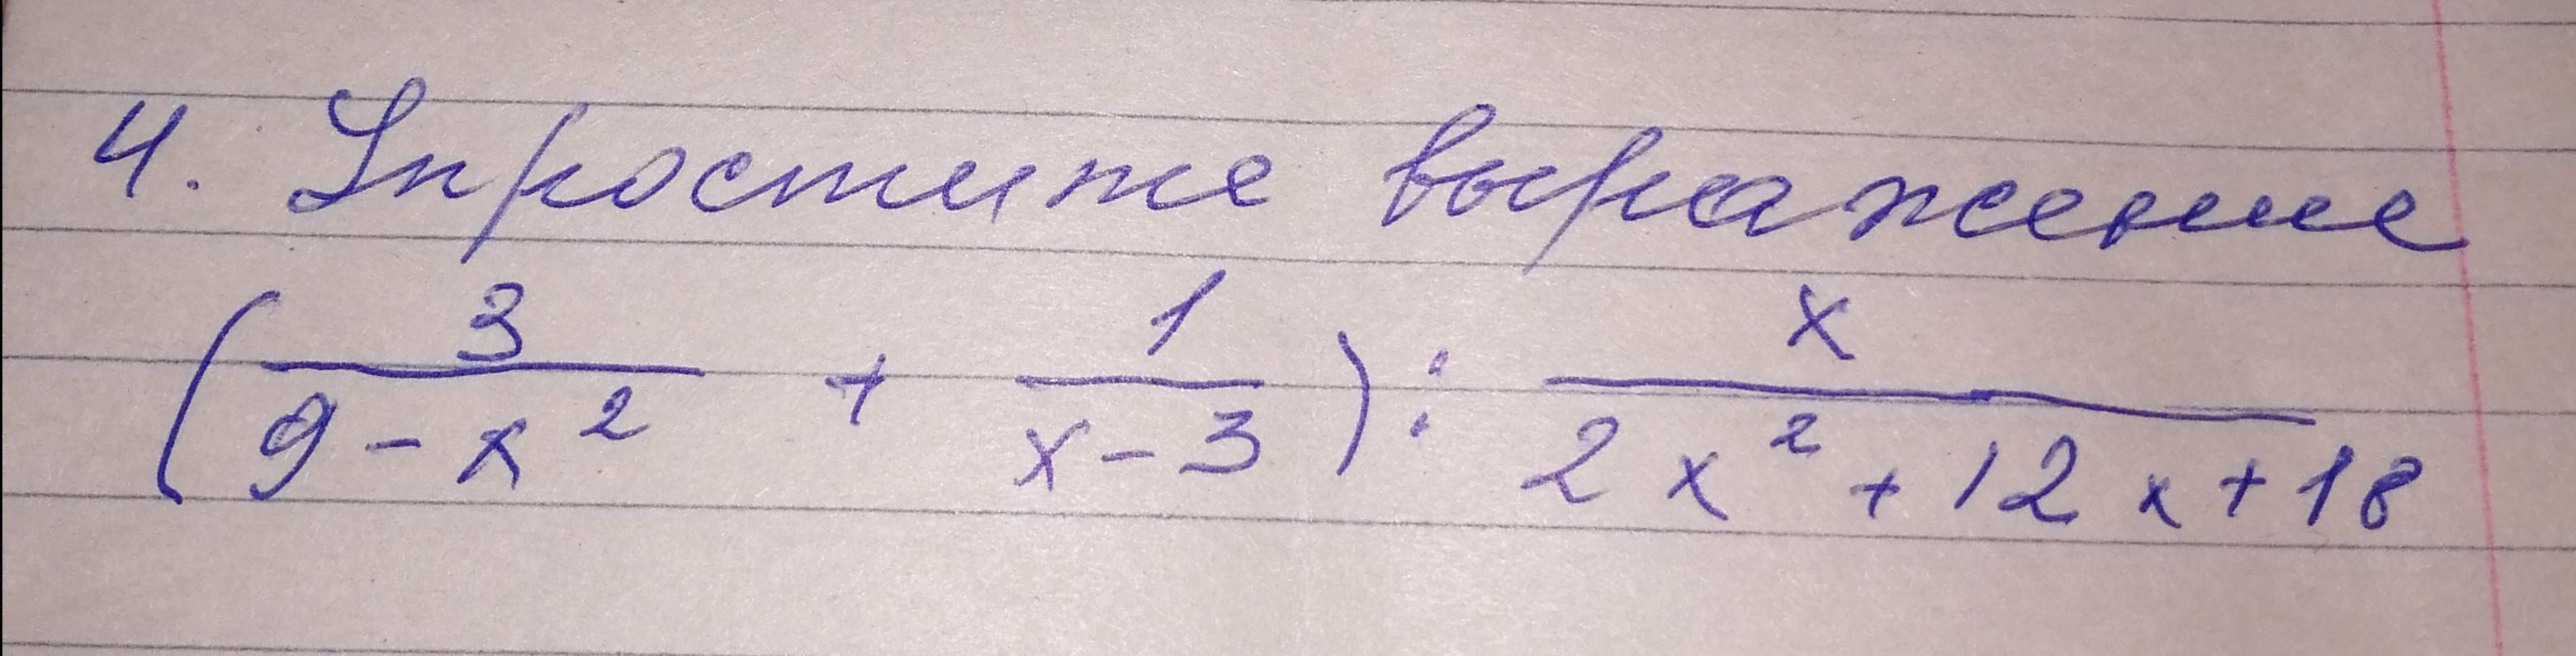 4. Упростите выражение
(3/(9-x²) + 1/(x-3)) : x/(2x²+12x+18)